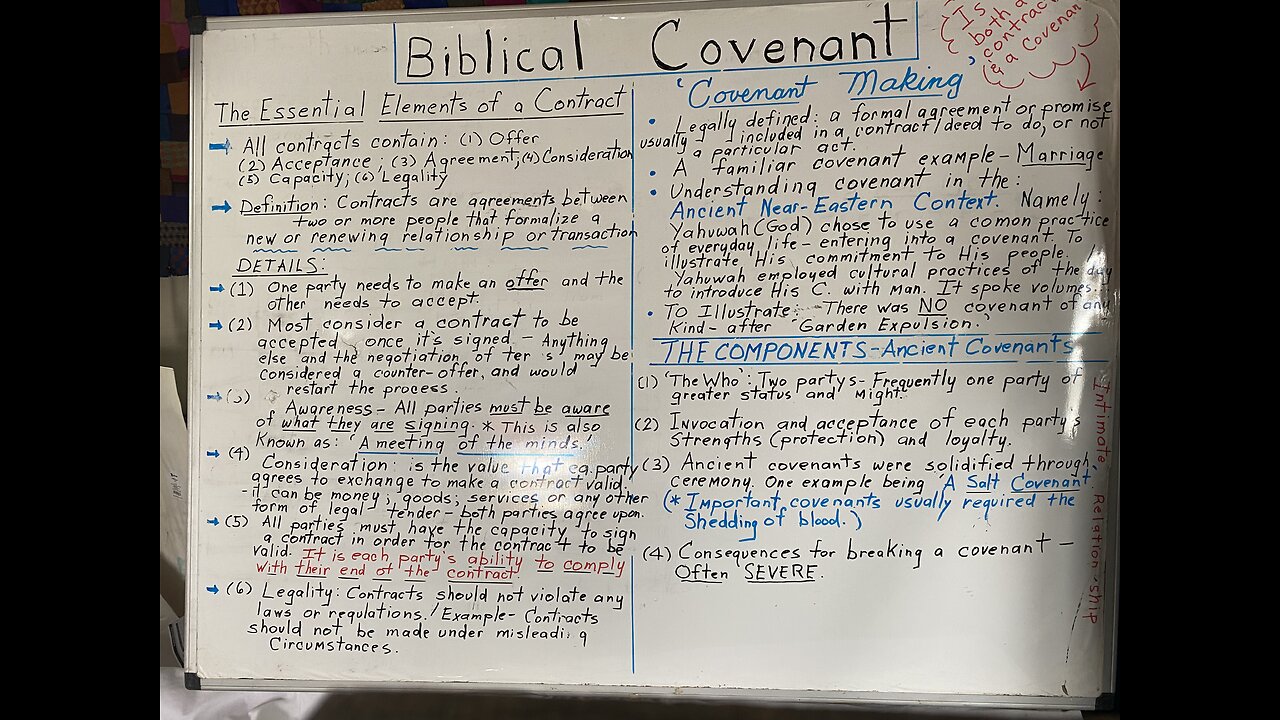 Biblical Covenant
Is
both a
contract
& a Covenant
The Essential Elements of a Contract
All contracts contain: (1) Offer
(2) Acceptance; (3) Agreement; (4) Consideration
(5) Capacity; (6) Legality
Definition: Contracts are agreements between
two or more people that formalize a
new or renewing relationship or transaction
DETAILS:
(1) One party needs to make an offer and the
other needs to accept.
(2) Most consider a contract to be
accepted, once it's signed. - Anything
else and the negotiation of ter s may be
considered a counter-offer, and would
restart the process.
(3)
Awareness - All parties must be aware
of what they are signing. * This is also
Known as: 'A meeting of the minds.'
(4)
Consideration: is the value that ea. party
agrees to exchange to make a contract valid.
- it can be money; goods; services or any other
form of legal-tender - both parties agree upon.
(5) All parties must have the capacity to sign
a contract in order for the contract to be
valid. It is each party's ability to comply
with their end of the contract.
(6) Legality: Contracts should not violate any
laws or regulations. / Example - Contracts
should not be made under misleadi g
Circumstances.
'Covenant Making'
• Legally defined: a formal agreement or promise
usually included in a contract/deed to do, or not
a particular act.
• A familiar covenant example - Marriage
• Understanding covenant in the:
Ancient Near-Eastern Context. Namely:
Yahuwah (God) chose to use a comon practice
of everyday life - entering into a covenant. To
illustrate His commitment to His people.
Yahuwah employed cultural practices of the day
to introduce His C. with man. It spoke volumes.
• To Illustrate: - There was NO covenant of any
Kind - after 'Garden Expulsion.'
THE COMPONENTS - Ancient Covenants
(1) 'The Who': Two partys - Frequently one party of
greater status and might.
(2) Invocation and acceptance of each party's
Strengths (protection) and loyalty.
(3) Ancient covenants were solidified through
ceremony. One example being 'A Salt Covenant'
(* Important covenants usually required the
Shedding of blood.)
(4) Consequences for breaking a covenant -
Often SEVERE.
Intimate Relation-ship